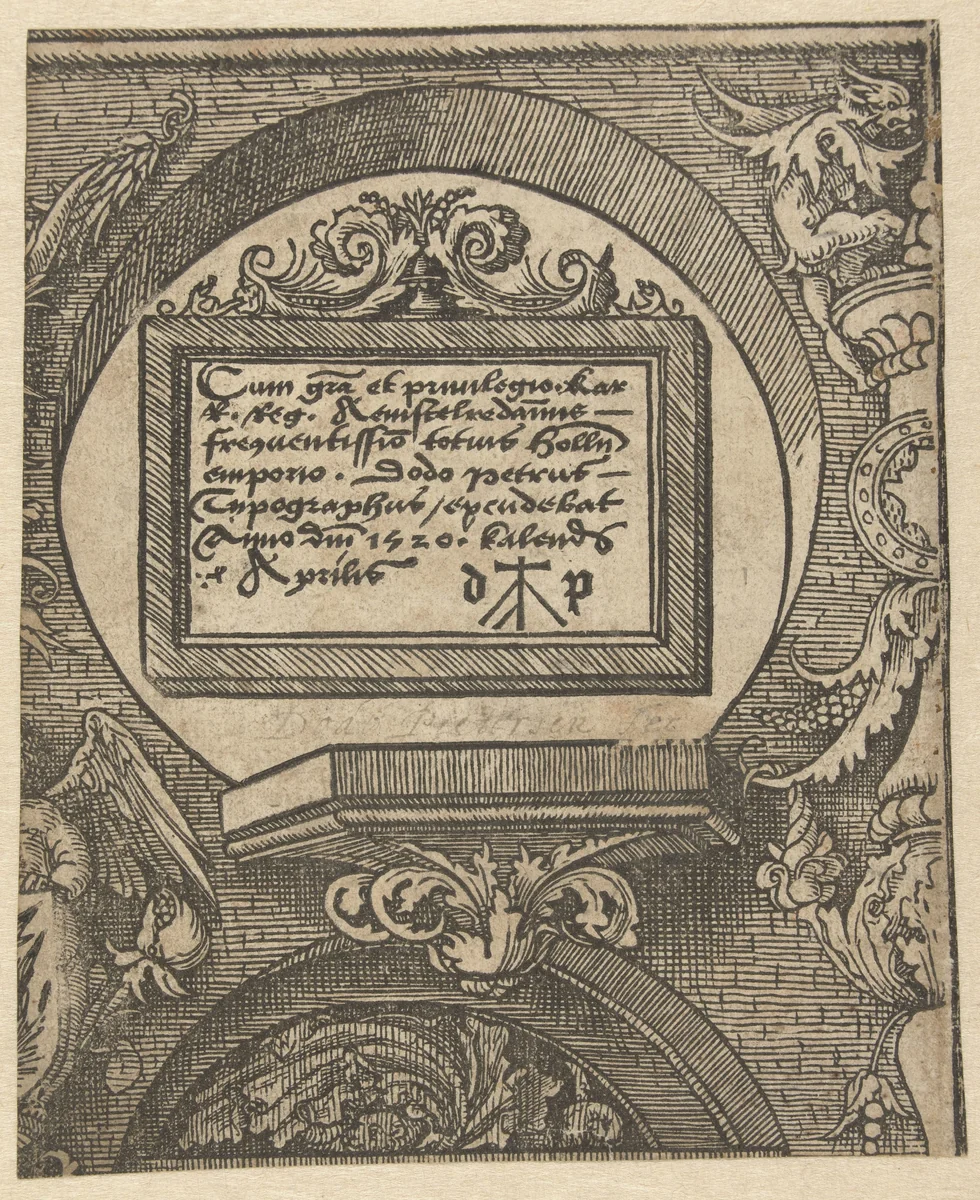 Cum gr̄a et priuilegio. Kar
R. Reg. Aemstelredam̄is —
frequentissīo totius Hollīj
emporio. Dodo Petrus —
Typographus / excudebat
Anno dn̄i 1520. kalendis
Aprilis
d p